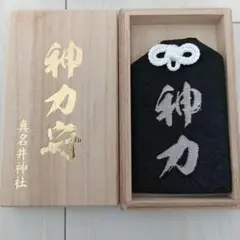 神刀守
真名井神社
神刀